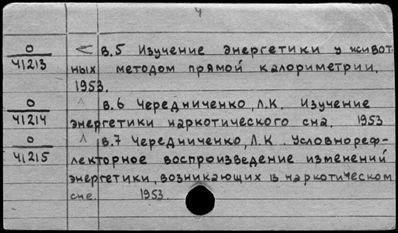 4
0
41213
< в.5 Изучение энергетики у живот-
ных методом прямой калориметрии.
1953.
0
41214
^ в.6 Чередниченко, Л.К. Изучение
энергетики наркотического сна. 1953
0
41215
^ в.7 Чередниченко, Л.К. Условнореф-
лекторное воспроизведение изменений
энергетики, возникающих в наркотическом
сне. 1953.